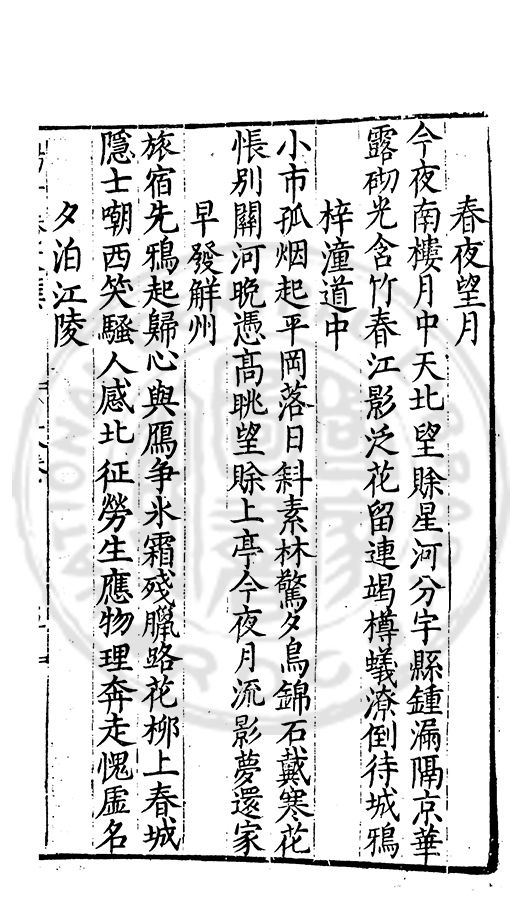 春夜望月
今夜南樓月中天北望賒星河分宇縣鍾漏隔京華
露砌光含竹春江影泛花留連竭樽蟻潦倒待城鴉
梓潼道中
小市孤烟起平岡落日斜素林驚夕鳥錦石戴寒花
悵別關河晚憑高眺望賒上亭今夜月流影夢還家
早發觧州
旅宿先鴉起歸心與鴈争氷霜殘臘路花柳上春城
隱士嘲西笑騷人感北征勞生應物理奔走愧虛名
夕泊江陵